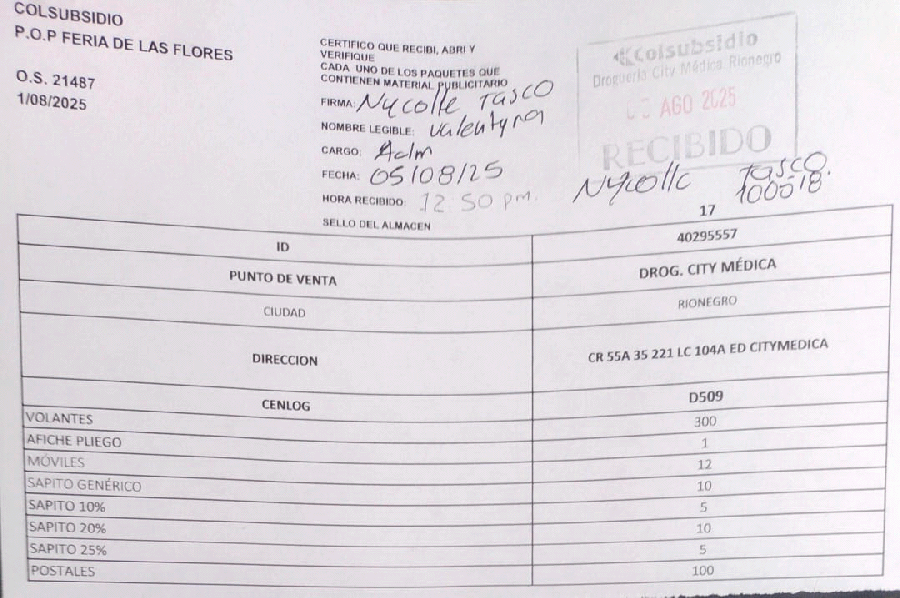 COLSUBSIDIO
P.O.P FERIA DE LAS FLORES
O.S. 21487
1/08/2025
CERTIFICO QUE RECIBI, ABRI Y
VERIFIQUE
CADA UNO DE LOS PAQUETES QUE
CONTIENEN MATERIAL PUBLICITARIO
FIRMA: Nycolle Tasco
NOMBRE LEGIBLE: Valentyna
CARGO: Adm
FECHA: 05/08/25
HORA RECIBIDO: 12 50 pm.
SELLO DEL ALMACEN
Colsubsidio
Droguería City Médica Rionegro
AGO 2025
RECIBIDO
Nycolle Tasco.
100018
17
ID 40295557
PUNTO DE VENTA DROG. CITY MÉDICA
CIUDAD RIONEGRO
DIRECCION CR 55A 35 221 LC 104A ED CITYMEDICA
CENLOG D509
VOLANTES 300
AFICHE PLIEGO 1
MÓVILES 12
SAPITO GENÉRICO 10
SAPITO 10% 5
SAPITO 20% 10
SAPITO 25% 5
POSTALES 100